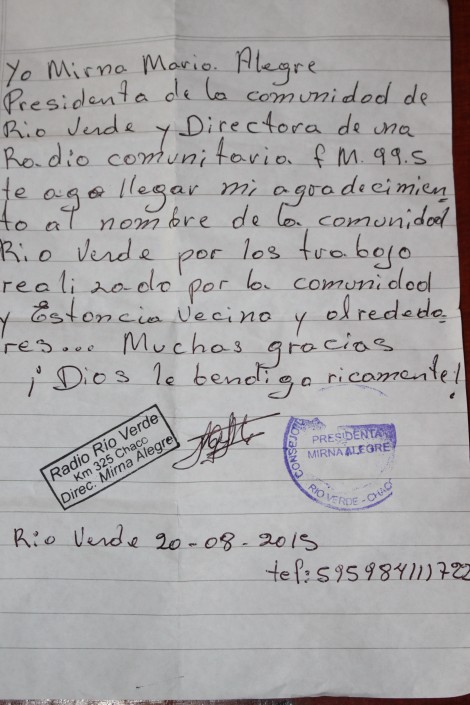 Yo Mirna Maria Alegre
Presidenta de la comunidad de
Rio Verde y Directora de una
Radio comunitaria f M. 99.5
te ago llegar mi agradecimien
to al nombre de la comunidad
Rio Verde por los trabajo
realizado por la comunidad
y Estancia Vecina y alrededo
res... Muchas gracias
¡Dios le bendiga ricamente!
Radio Río Verde
Km 325 Chaco
Direc. Mirna Alegre
CONSEJO
PRESIDENTA
MIRNA ALEGRE
RIO VERDE - CHACO
Rio Verde 20-08-2015
tef: 595984111722